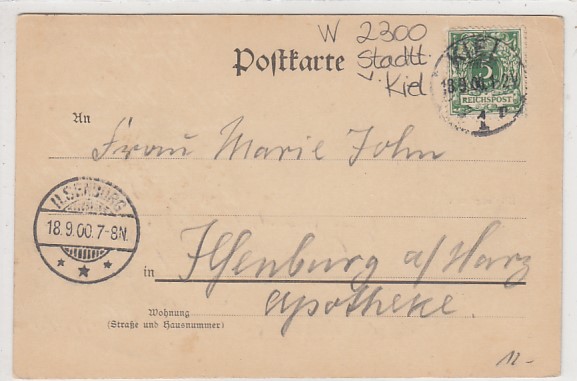 W 2300
Postkarte Stadtt.
Kiel
KIEL
18.9.00.1-2V
1
5
REICHSPOST
An
Frau Marie John
ILSENBURG
18.9.00.7-8N.
in Ilsenburg a/Harz
Apotheke.
Wohnung
(Straße und Hausnummer)
12-